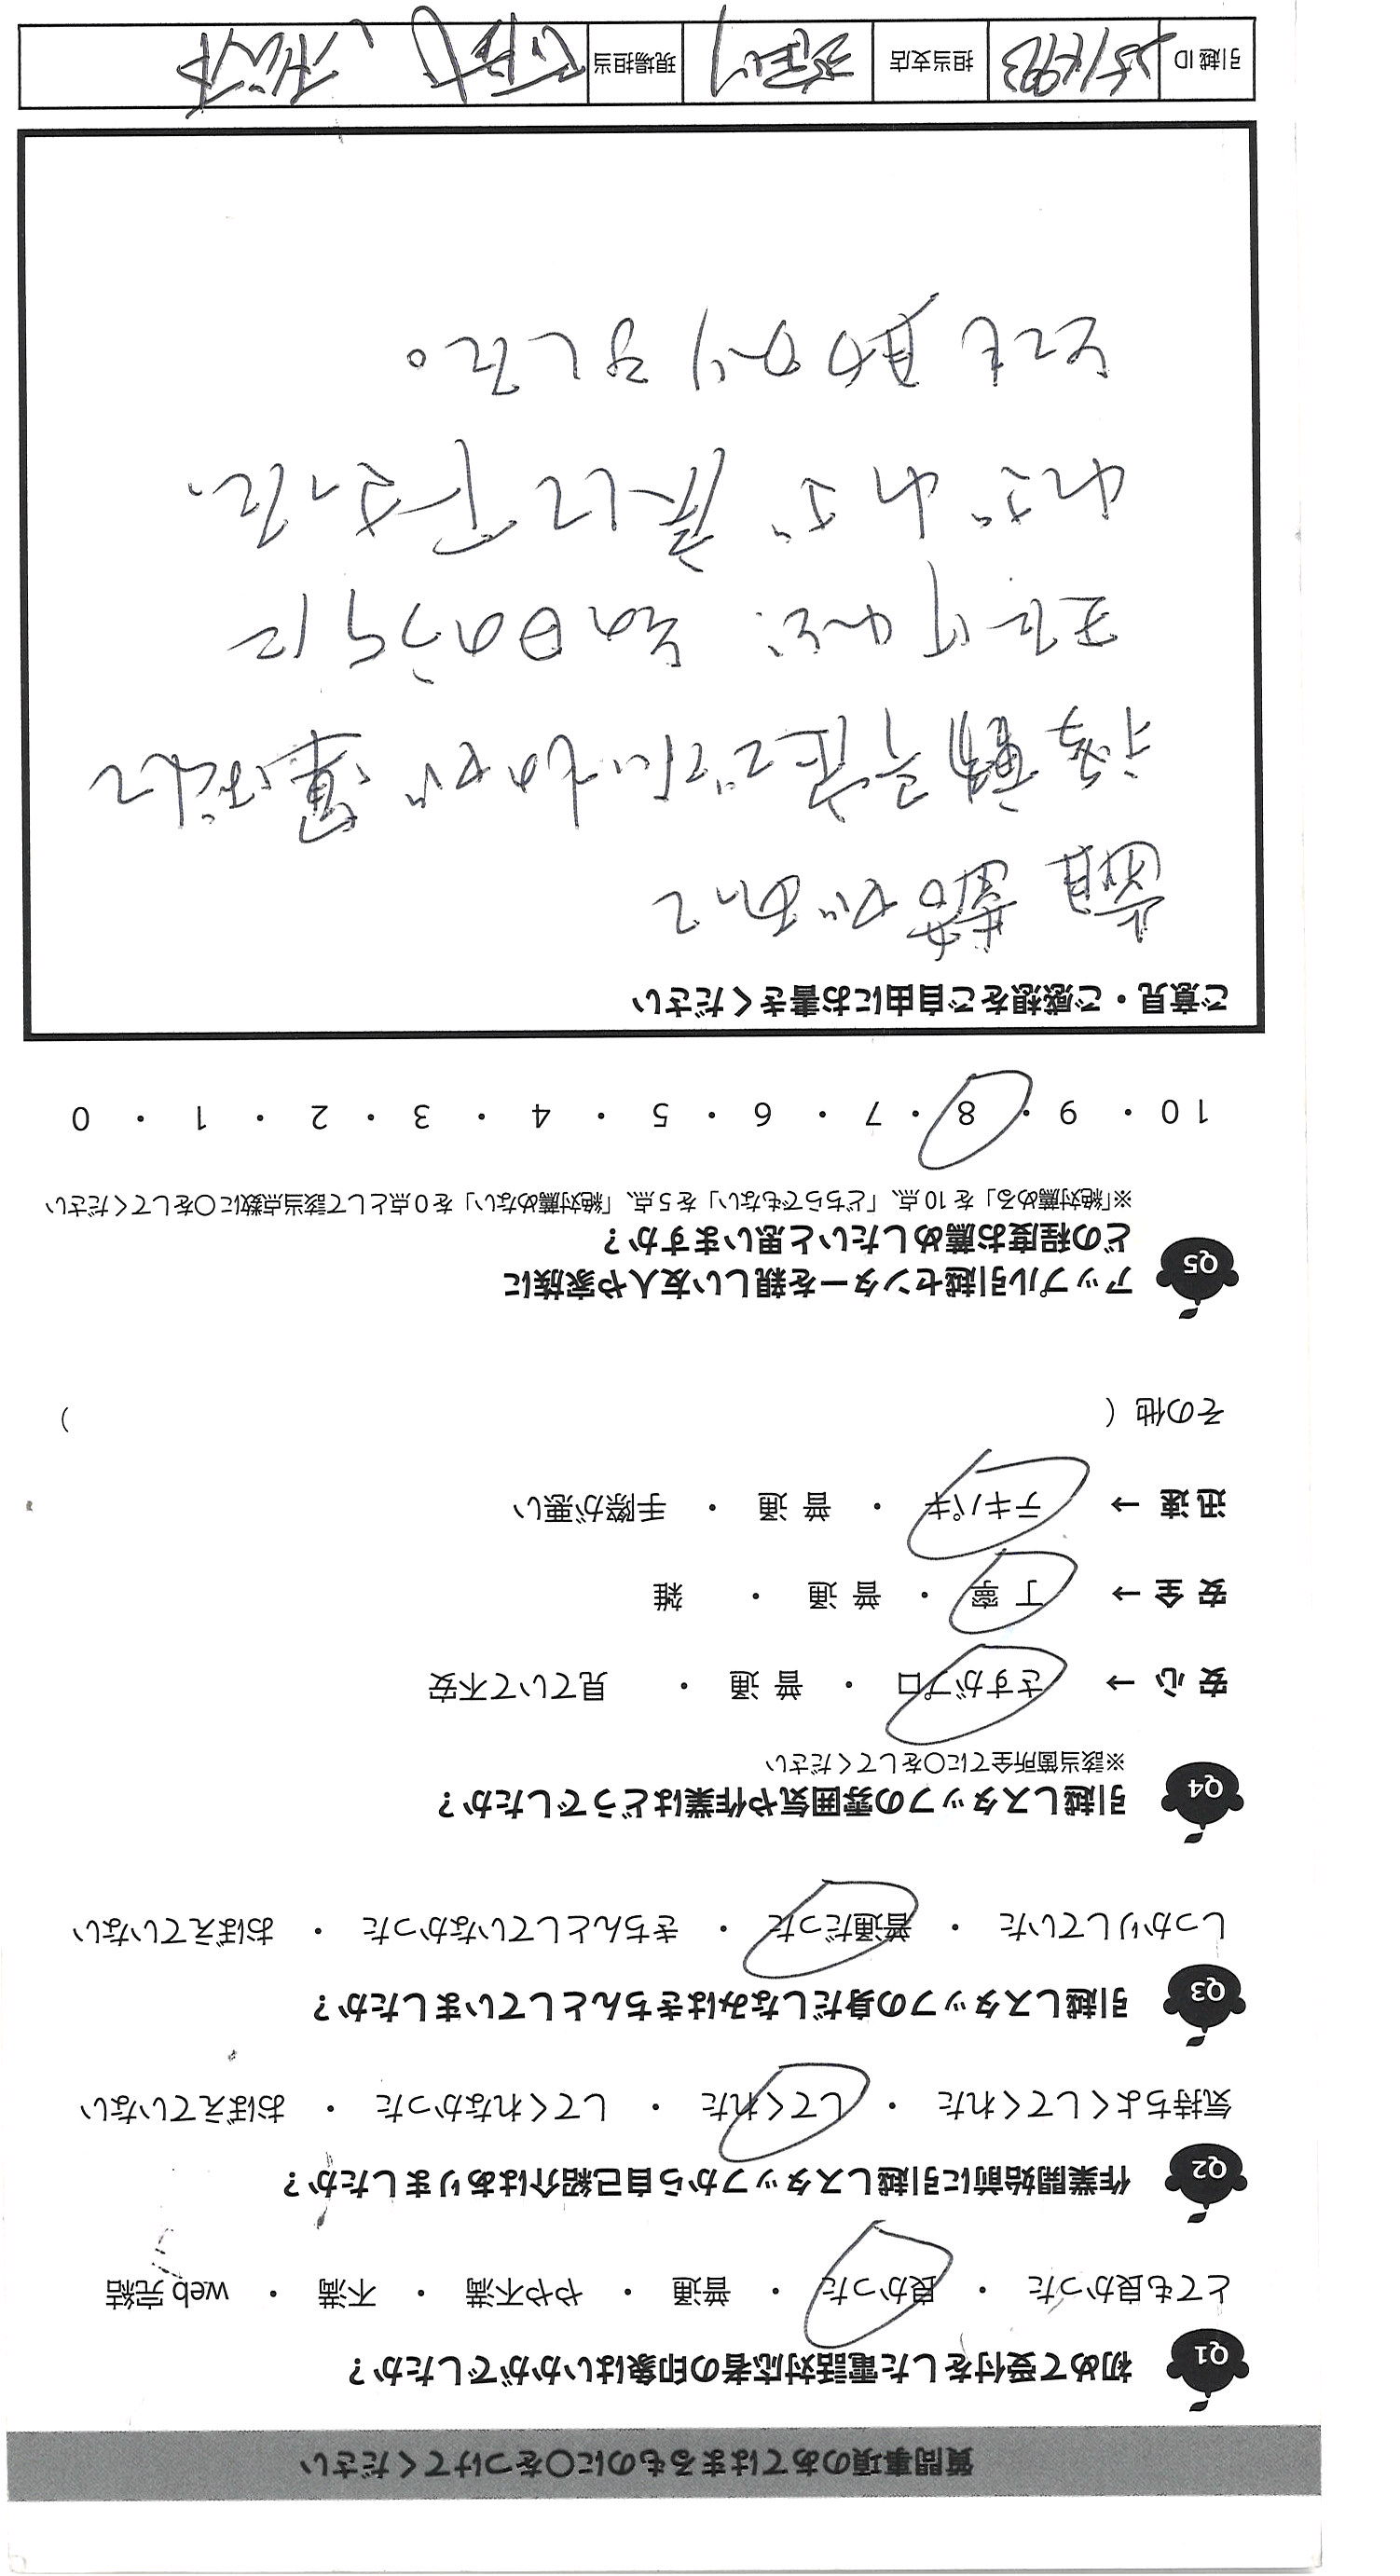 質問事項のあてはまるものに○をつけてください
Q1 初めて受付をした電話対応者の印象はいかがでしたか？
とても良かった ・ 良かった ・ 普通 ・ やや不満 ・ 不満 ・ web完結
Q2 作業開始前に引越しスタッフから自己紹介はありましたか？
気持ちよくしてくれた ・ してくれた ・ してくれなかった ・ おぼえていない
Q3 引越しスタッフの身だしなみはきちんとしていましたか？
しっかりしていた ・ 普通だった ・ きちんとしていなかった ・ おぼえていない
Q4 引越しスタッフの雰囲気や作業はどうでしたか？
※該当箇所全てに○をしてください
安心 → さすがプロ ・ 普通 ・ 見ていて不安
安全 → 丁寧 ・ 普通 ・ 雑
迅速 → テキパキ ・ 普通 ・ 手際が悪い
その他（ ）
Q5 アップル引越センターを親しい友人や家族に
どの程度お薦めしたいと思いますか？
※「絶対薦める」を10点、「どちらでもない」を5点、「絶対薦めない」を0点として該当点数に○をしてください
10 ・ 9 ・ 8 ・ 7 ・ 6 ・ 5 ・ 4 ・ 3 ・ 2 ・ 1 ・ 0
ご意見・ご感想をご自由にお書きください
が出て
待機 ていたものが 運ばれて
その日のうちに
わざわざ 戻して下さった。
とても助かりました。
引越ID 担当支店 現場担当